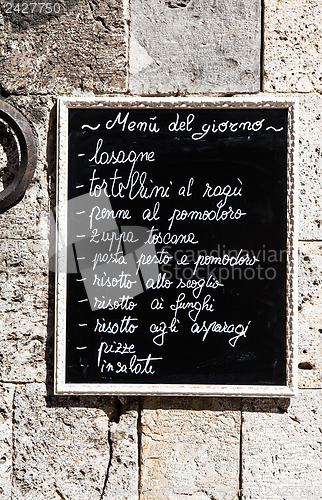 2427750
~ Menù del giorno ~
- lasagne
- tortellini al ragù
- penne al pomodoro
- zuppa toscana
- pasta pesto e pomodoro
- risotto allo scoglio
- risotto ai funghi
- risotto agli asparagi
- pizze
insalate